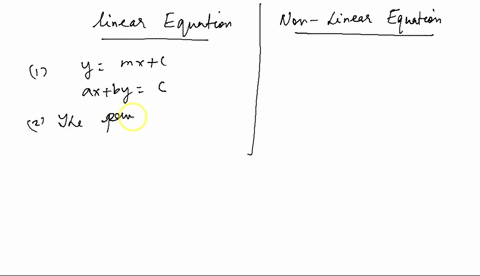 linear Equation
Non-Linear Equation
(1) y = mx+c
ax+by = c
(2) The pow